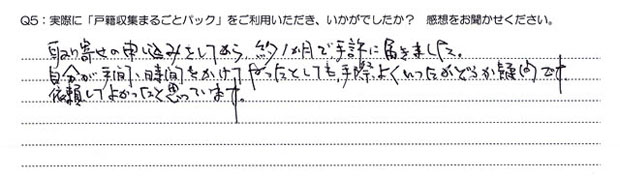 Q5：実際に「戸籍収集まるごとパック」をご利用いただき、いかがでしたか？ 感想をお聞かせください。
取り寄せの申し込みをしてから、約1か月で手許に届きました。
自分が手間、時間をかけてやったとしても、手際よくいったかどうか疑問です。
依頼してよかったと思っています。